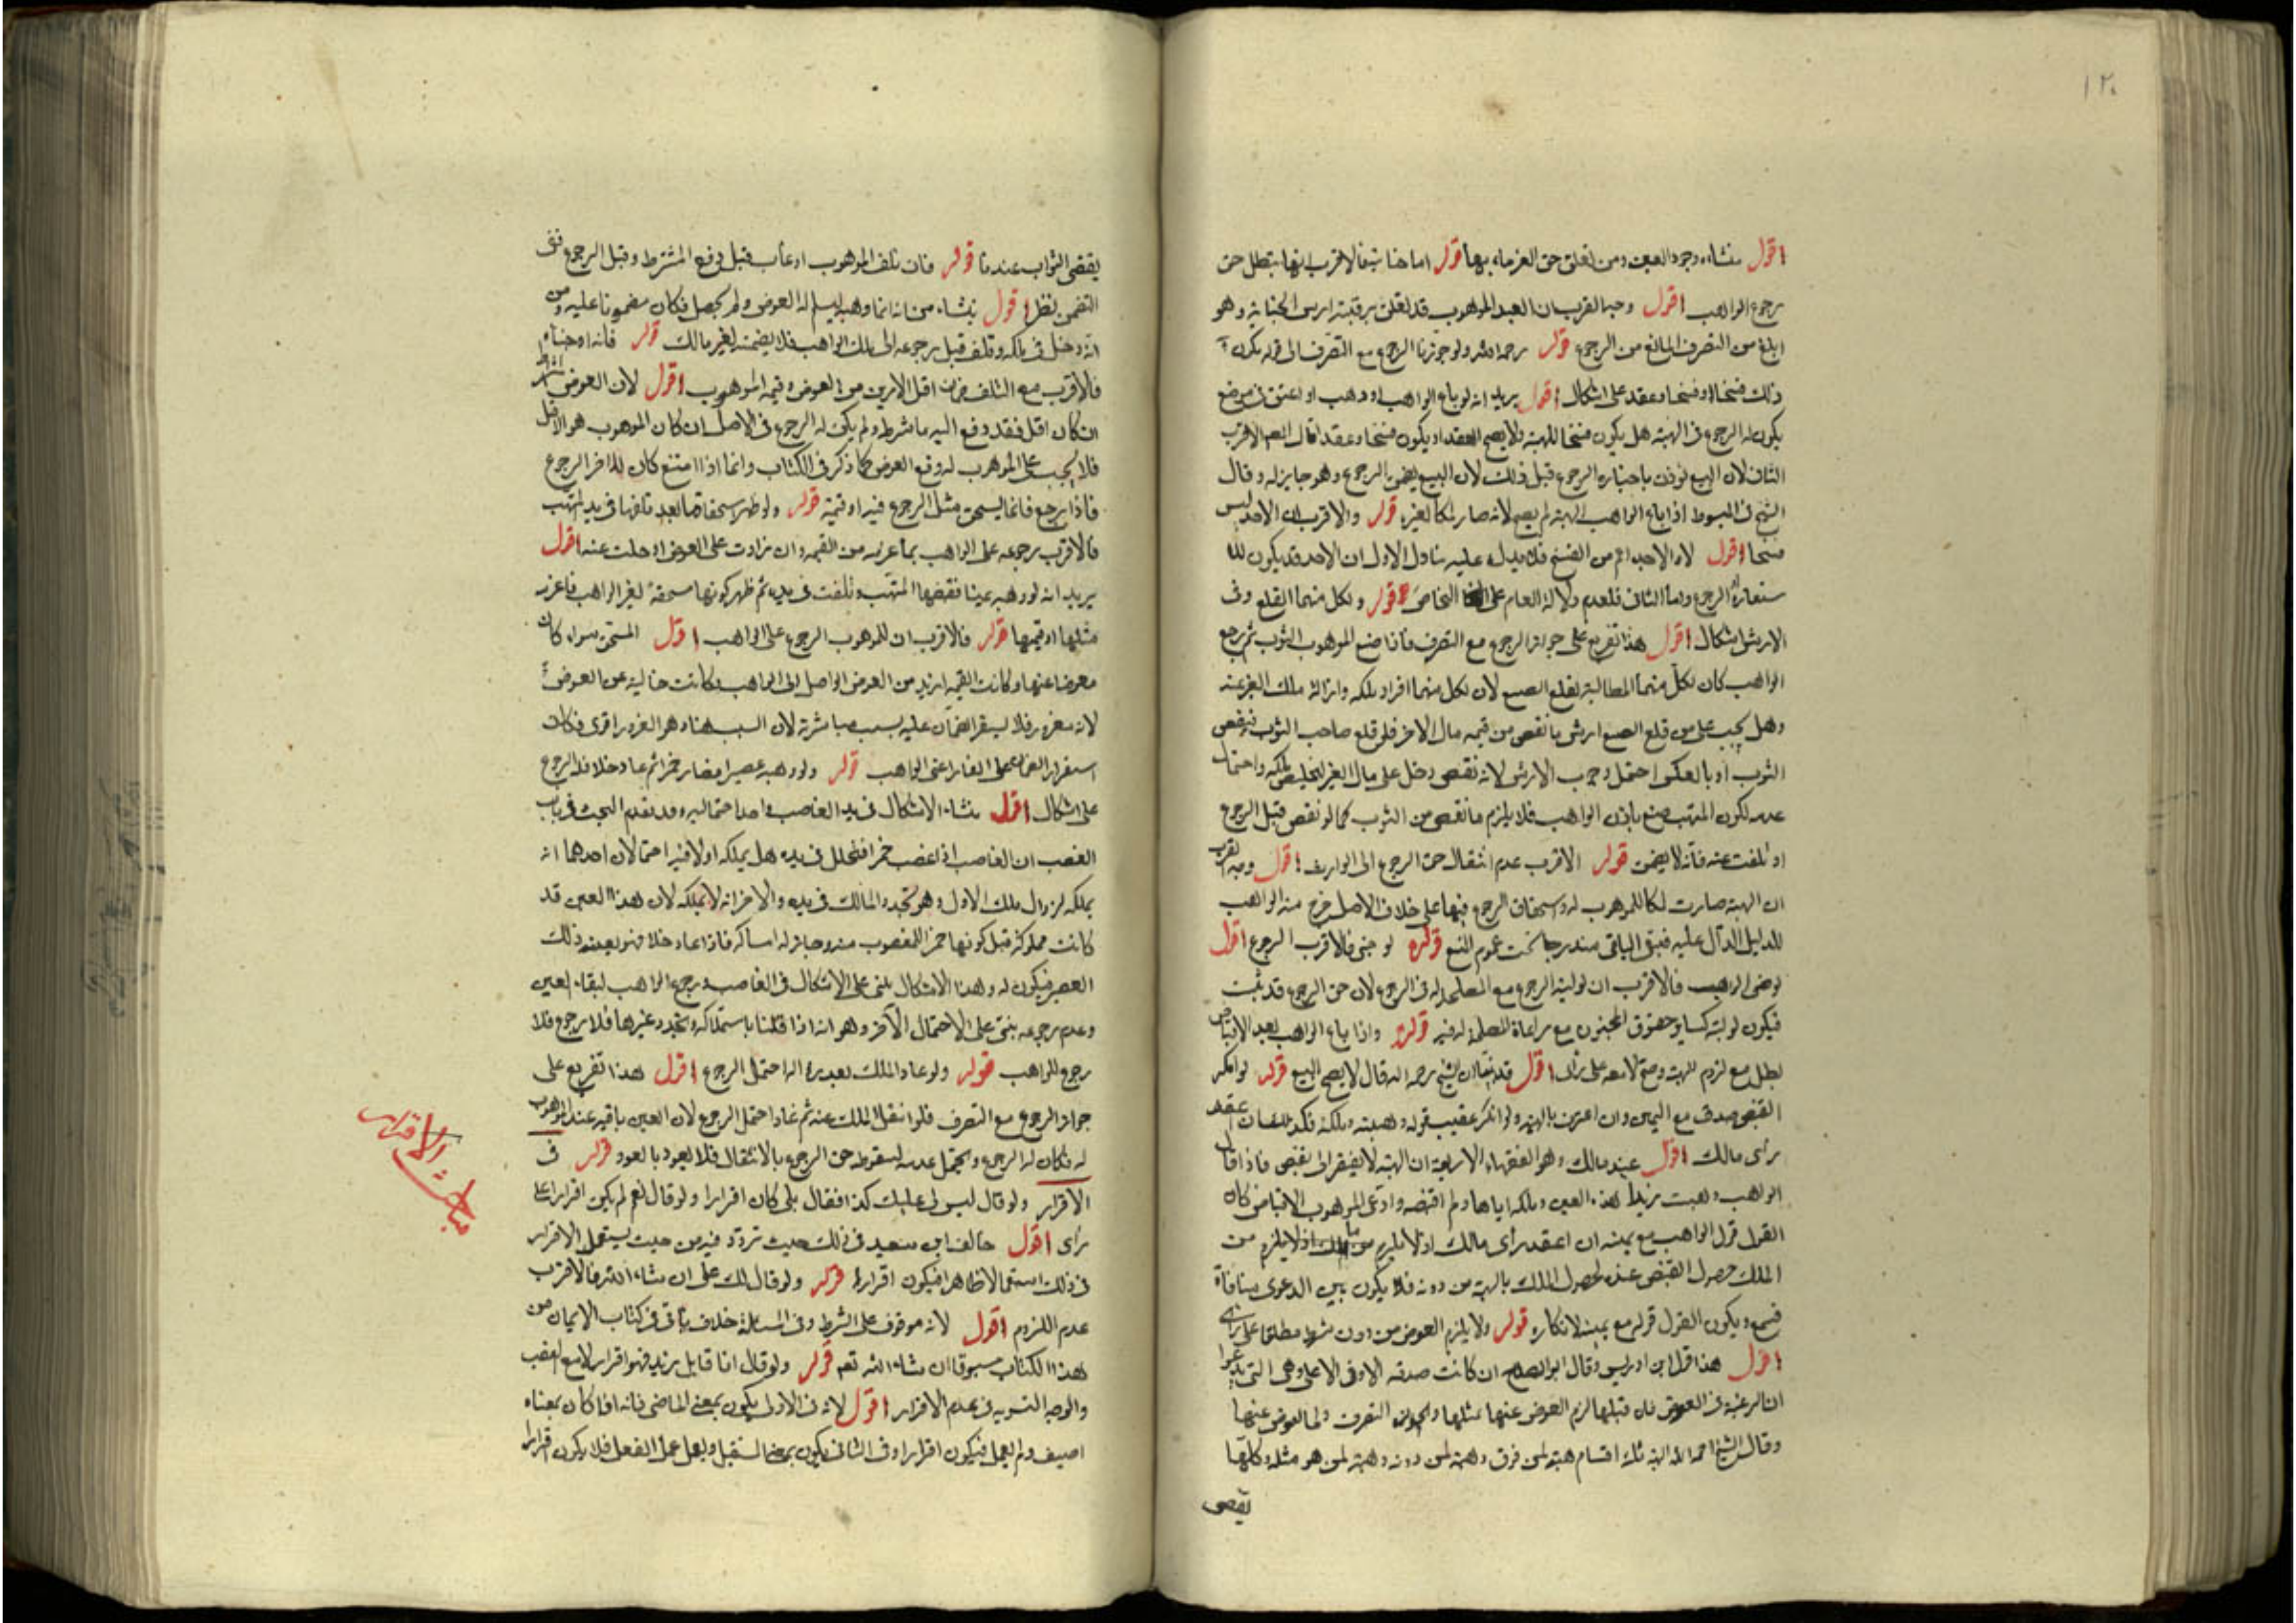 ١٢٠
اقول منشاءه وجود العين ومن تعلق حق الغرماء بها قوله اما جناية فالاقرب انها تبطل حق
رجوع الواهب اقول وجه القرب ان العبد الموهوب قد تعلق برقبته ارش الجناية وهو
ابلغ من التصرف المانع من الرجوع قوله رحمه الله ولو جوزنا الرجوع مع التصرف الى قوله يكون
ذلك فسخا او فسخا وعقد على اشكال اقول يريد انه لو باع الواهب او وهب او اعتق في موضع
يكون له الرجوع في الهبة هل يكون فسخا للهبة ولا يصح العقد او يكون فسخا وعقدا قال المص الاقرب
الثاني لان البيع يوذن باختياره الرجوع قبل ذلك لان البيع يضمن الرجوع وهو جايز له وقال
الشيخ في المبسوط اذا باع الواهب الهبة لم يصح لانه صار ملكا لغيره قوله والاقرب ان الاخذ ليس
فسخا اقول لان الاخذ اعم من الفسخ فلا يدل عليه بيان الاول ان الاخذ قد يكون لل
ستعارة او الرجوع واما الثاني فلعدم دلالة العام على الخاص قوله ولكل منهما القلع وفي
الارش اشكال اقول هذا تفريع على جواز الرجوع مع التصرف فاذا صبغ الموهوب الثوب ثم رجع
الواهب كان لكل منهما المطالبة بقلع الصبغ لان لكل منهما افراد ملكه وازالة ملك الغير عنه
وهل يجب على من قلع الصبغ ارش ما نقص من قيمة مال الاخر فلو قلع صاحب الثوب فنقص
الثوب او بالعكس احتمل وجوب الارش لانه نقص دخل على مال الغير لتخليص ملكه واحتمل
عدمه لكون المتهب صبغ باذن الواهب فلا يلزم ما نقص من الثوب كما لو نقص قبل الرجوع
او تلفت عنه فانه لا يضمن قوله الاقرب عدم انتقال حق الرجوع الى الوارث اقول وجه القرب
ان الهبة صارت ملكا للموهوب له واستحقاق الرجوع فيها على خلاف الاصل خرج منه الواهب
للدليل الدال عليه فبقى الباقي مندرجا تحت عموم المنع قوله لو جن فالاقرب الرجوع اقول
لو جن الواهب فالاقرب ان لوليه الرجوع مع المصلحة له في الرجوع لان حق الرجوع قد ثبت
فيكون لوليه كساير حقوق المجنون مع مراعاة المصلحة له فيه قوله واذا باع الواهب بعد الاقباض
بطل مع لزوم الهبة وصح لا معه على رأى اقول قد نقلنا ان الشيخ رحمه الله قال لا يصح البيع قوله لو انكر
القبض صدق مع اليمين وان اعترف بالهبة ولو انكر عقيب قوله وهبته وملكته فكذلك ان اعتقد
رأى مالك اقول عند مالك وهو الفقهاء الاربعة ان الهبة لا يفتقر الى قبض فاذا قال
الواهب وهبت زيدا هذه العين وملكه اياها ولم اقبضه وادعى الموهوب الاقباض كان
القول قول الواهب مع يمينه ان اعتقد رأى مالك اذ لا يلزم من
الملك حصول القبض عنده لحصول الملك بالهبة من دونه فلا يكون بين الدعوى منافاة
فسمع ويكون القول قوله مع يمينه لانكاره قوله ولا يلزم العوض من دون شرط مطلقا على رأى
اقول هذا قول ابن ادريس وقال ابو الصلاح ان كانت صدقه الادنى الاعلى وهي التي
ان الرغبة في العوض فان قبلها لزم العوض عنها بمثلها ولا يجوز له التصرف ولما العوض عنها
وقال الشيخ رحمه الله الهبة ثلثة اقسام هبة لمن فوق وهبة لمن دونه وهبة لمن هو مثله وكلها
يقضى
يقضى الثواب عندنا قوله فان تلف الموهوب او عاب قبل دفع المشترط وقبل الرجوع ففى
التضمين نظر اقول ينشاء من انه انما وهبه ليسلم له العوض ولم يحصل فكان مضمونا عليه ومن
انه دخل في ملكه وتلف قبل رجوعه الى ملك الواهب فلا يضمنه لغير مالك قوله فان اوجبناه
فالاقرب مع التلف ضمان اقل الامرين من العوض وقيمة الموهوب اقول لان العوض
ان كان اقل فقد دفع اليه ما شرط ولم يكن له الرجوع في الاصل ان كان الموهوب هو الاقل
فلا يجب على الموهوب له دفع العوض كما ذكر في الكتاب وانما اذا امتنع كان للاخر الرجوع
فاذا رجع فانما يستحق مثل الرجوع فيه او قيمته قوله ولو ظهر استحقاقها بعد تلفها في يد المتهب
فالاقرب رجوعه على الواهب بما غرمه من القيمة وان زادت على العوض او خلت عنه اقول
يريد انه لو وهبه عينا فقبضها المتهب وتلفت في يده ثم ظهر كونها مستحقة لغير الواهب فاغرمه
مثلها او قيمتها قوله فالاقرب ان للموهوب الرجوع على الواهب اقول المستحق سواء كان
معوضا عنها او كانت القيمة ازيد من العوض الواصل الى الواهب او كانت خالية عن العوض
لانه مغرور فلا يستقر الضمان عليه بسبب مباشرته لان السبب هنا وهو الغرور اقوى فكان
استقرار الضمان على الغار اعنى الواهب قوله ولو وهبه عصيرا فصار خمرا ثم عاد خلا فله الرجوع
على اشكال اقول منشاء الاشكال في يد الغاصب واحد احتماليه وقد تقدم البحث في باب
الغصب ان الغاصب اذا غصب خمرا فتخلل في يده هل يملكه او لا فيه احتمالان احدهما انه
يملكه لزوال ملك الاول وهو تجدد المالك في يده والاخر انه لا يملكه لان هذا العين قد
كانت مملوكة قبل كونها خمرا للمغصوب منه وجايز له امساكه فاذا عاد خلا فهو بعينه ذلك
العصير فيكون له وهذا الاشكال بنى على الاشكال في الغاصب ورجوع الواهب لبقاء العين
وعدم رجوعه بنى على الاحتمال الاخر وهو انه اذا قلنا باستملاكه وتجدد غيرها فلا رجوع فلا
رجوع للواهب قوله ولو عاد الملك بعد زواله احتمل الرجوع اقول هذا تفريع على
جواز الرجوع مع التصرف فلو انتقل الملك عنه ثم عاد احتمل الرجوع لان العين باقية عند الموهوب
له فكان له الرجوع ويحتمل عدمه لسقوط حق الرجوع بالانتقال فلا يعود بالعود قوله في
الاقرار ولو قال ليس لى عليك كذا فقال بلى كان اقرارا ولو قال نعم لم يكن اقرارا على
رأى اقول خالف ابن سعيد في ذلك حيث تردد فيه من حيث يستعمل الاقرار
في ذلك استعمالا ظاهرا فيكون اقرارا قوله ولو قال لك على ان شاء الله فالاقرب
عدم اللزوم اقول لانه موقوف على الشرط وفي المسئلة خلاف يأتى في كتاب الايمان من
هذا الكتاب مسبوقا ان شاء الله تعم قوله ولو قال انا قاتل زيد فهو اقرار لا مع النصب
والوجه التسوية في عدم الاقرار اقول لانه في الاول يكون بمعنى الماضى فانه اذا كان بمعناه
اضيف ولم يعمل فيكون اقرارا وفي الثانى يكون بمعنى المستقبل ويعمل عمل الفعل فلا يكون اقرارا
مباحث الاقرار